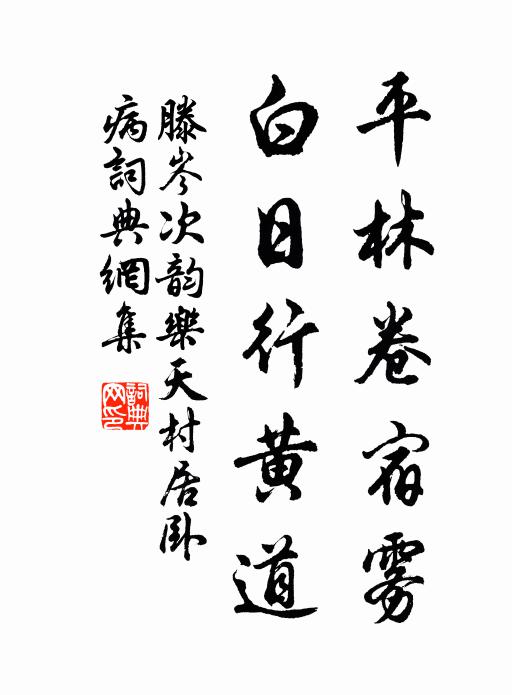 平林卷宿雾
白日行黄道
滕岑次韵樂天村居卧
病詞典網集
詞典
网印